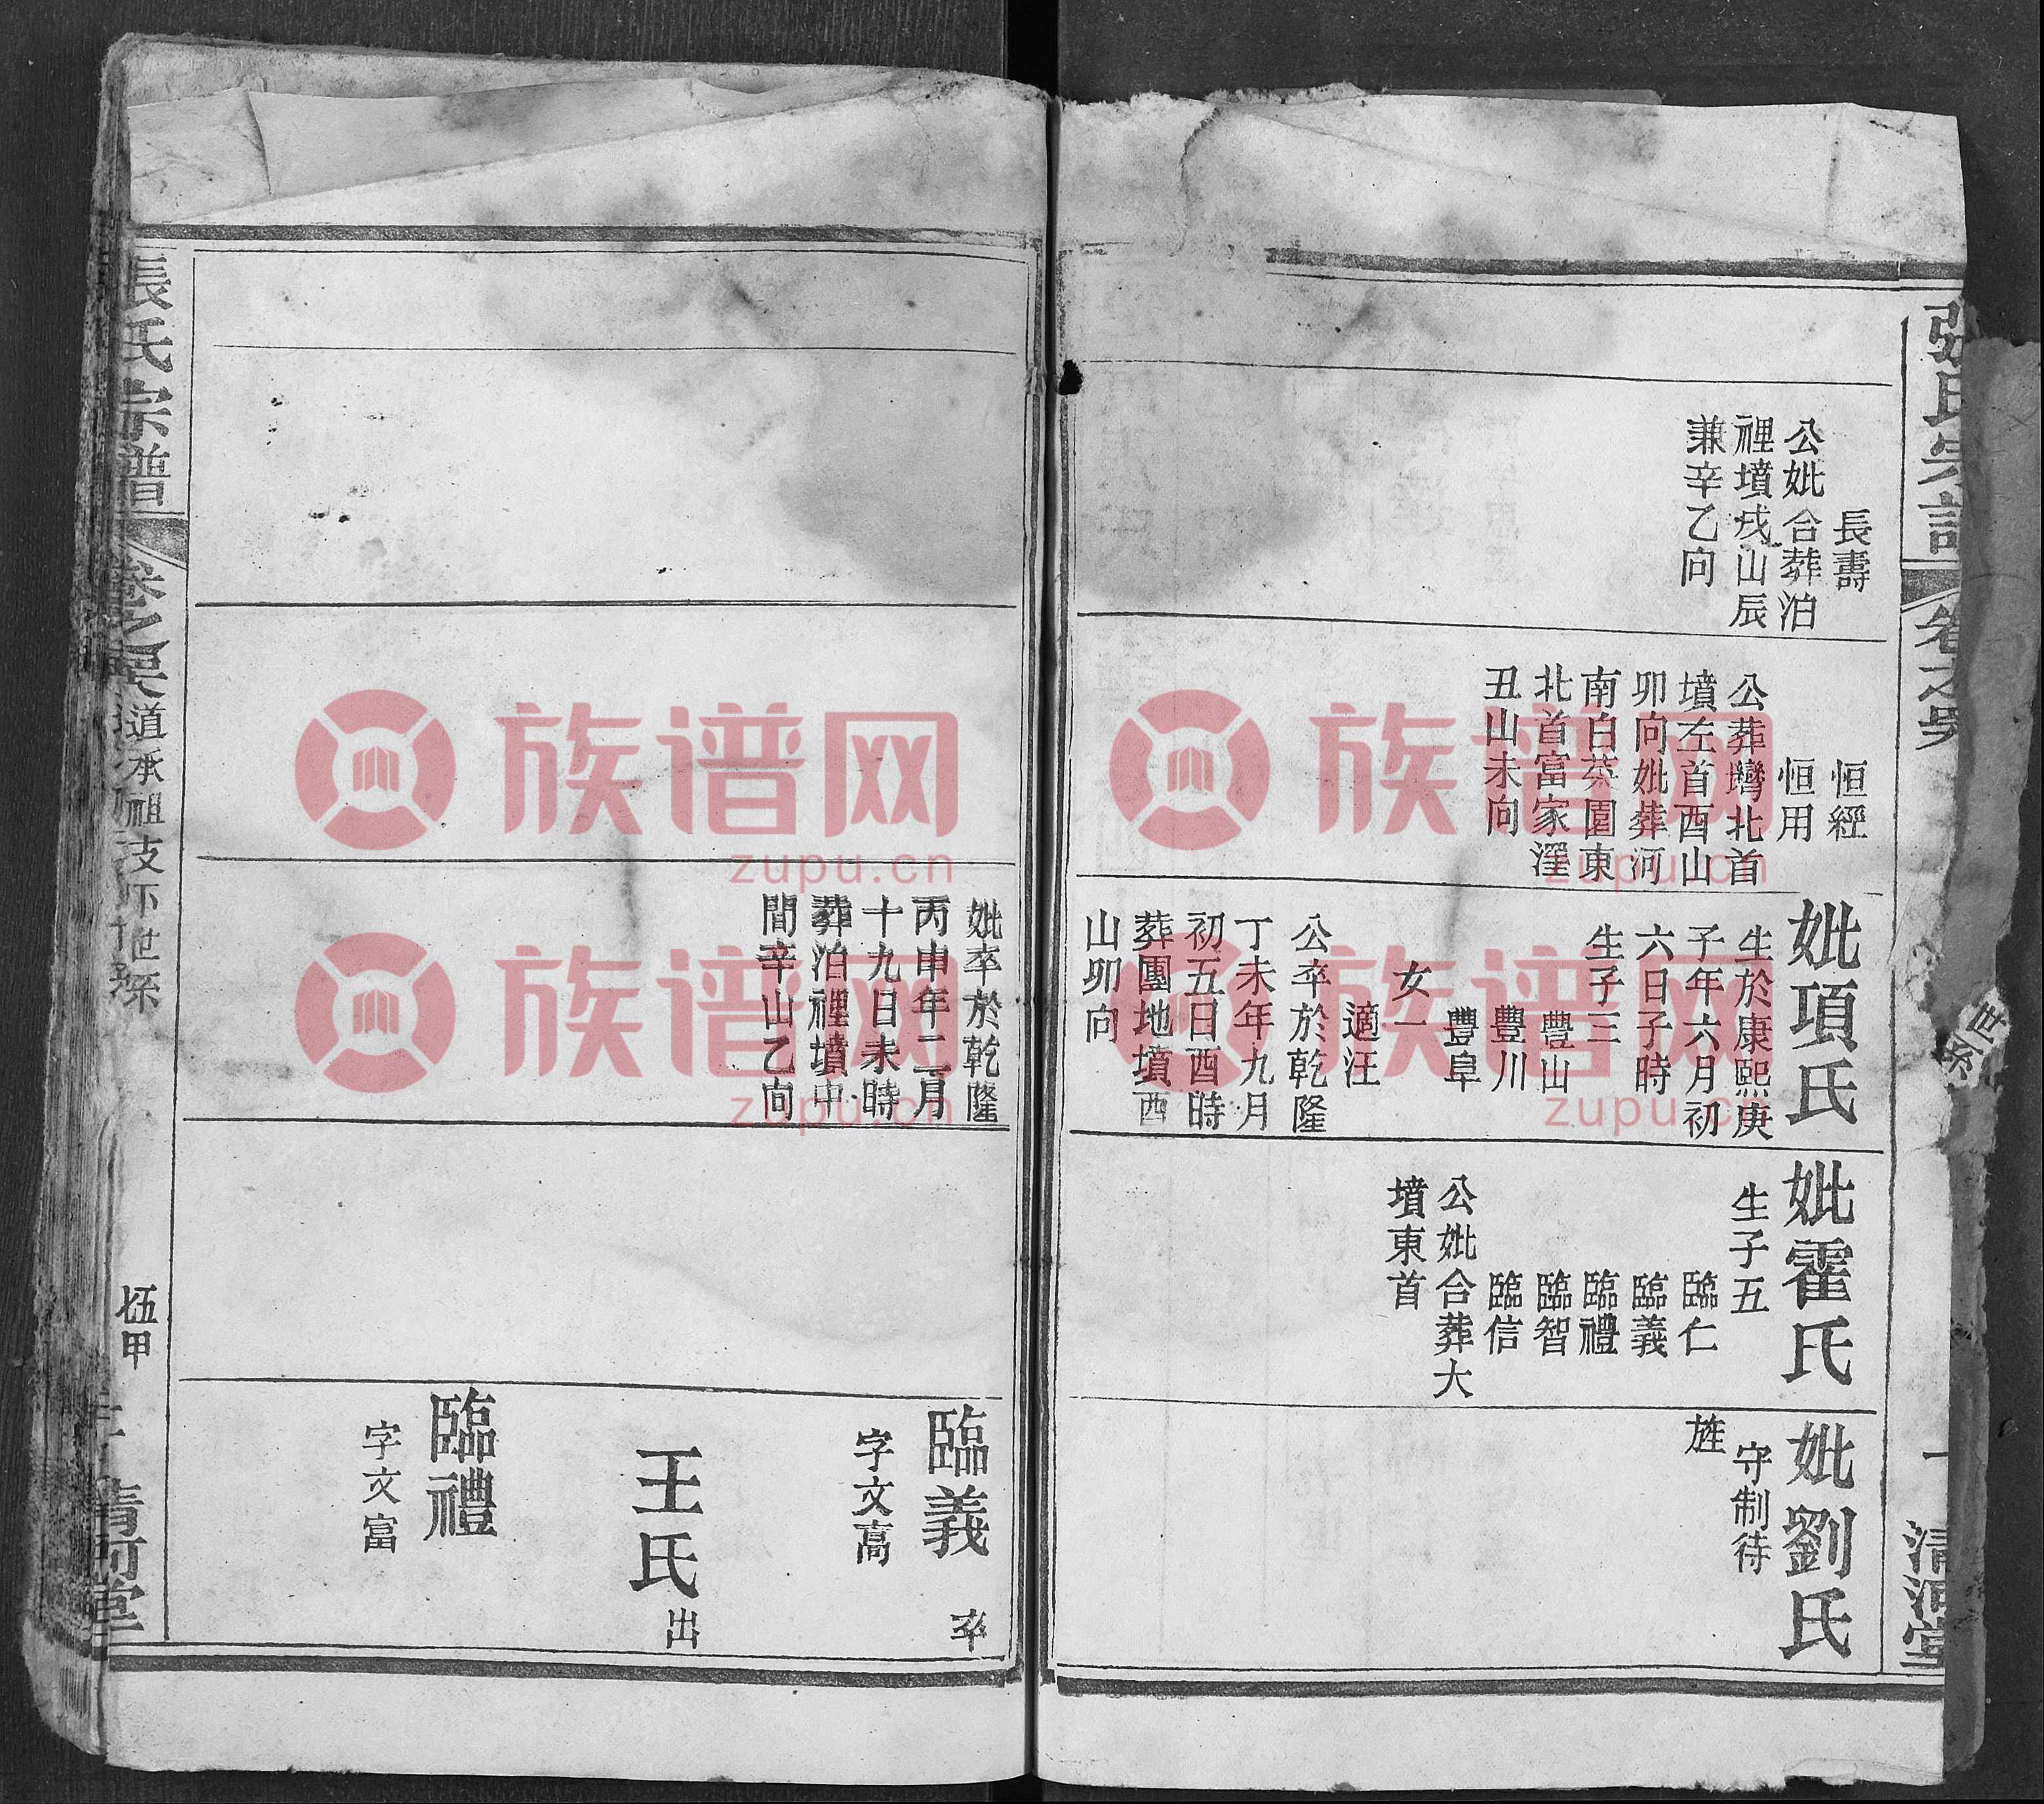 張氏宗譜
卷之吳
世系
一
清河堂
長壽
公妣合葬泊
裡墳戌山辰
兼辛乙向
恒經
恒用
公葬塆北首
墳左首酉山
卯向妣葬河
南白茶園東
北首富家澤
丑山未向
妣項氏
生於康熙庚
子年六月初
六日子時
生子三
豐山
豐川
豐阜
女一
適汪
公卒於乾隆
丁未年九月
初五日酉時
葬團地墳酉
山卯向
妣霍氏
生子五
臨仁
臨義
臨禮
臨智
臨信
公妣合葬大
墳東首
妣劉氏
守制待
旌
妣卒於乾隆
丙申年二月
十九日未時
葬泊裡墳中
間辛山乙向
臨義
卒
字文高
王氏
出
臨禮
字文富
張氏宗譜
卷之吳
道承祖支下世系
伍甲
清河堂
族谱网
zupu.cn
族谱网
zupu.cn
族谱网
zupu.cn
族谱网
zupu.cn